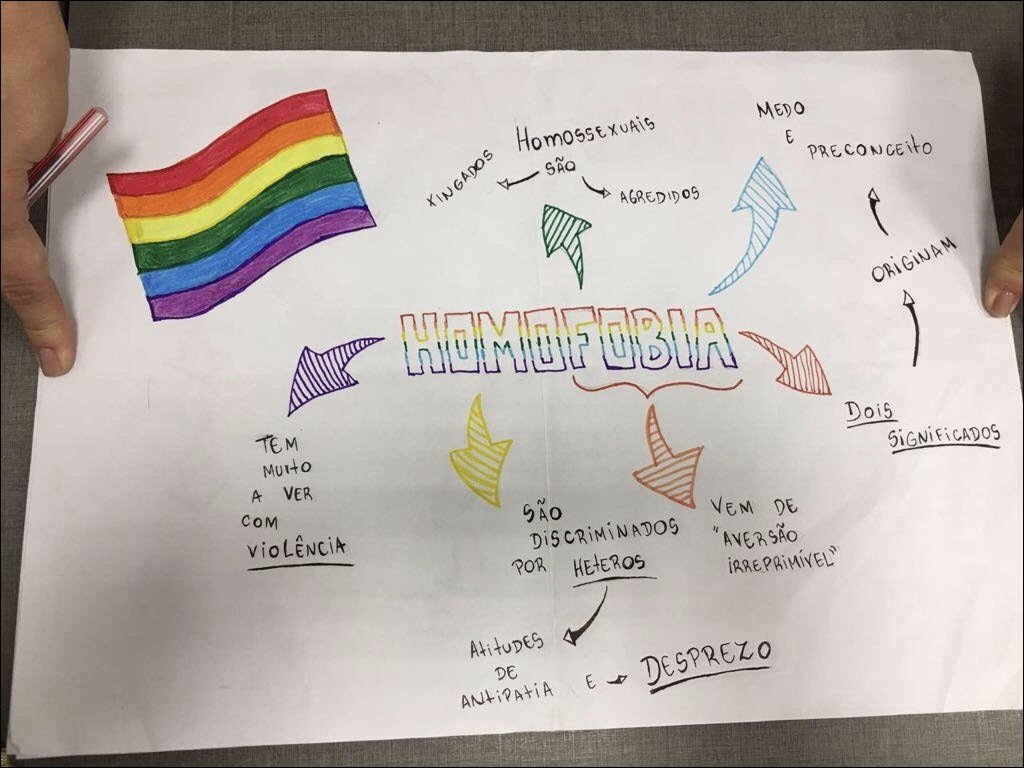 HOMOSSEXUAIS
SÃO
XINGADOS
AGREDIDOS
MEDO
E
PRECONCEITO
ORIGINAM
HOMOFOBIA
DOIS
SIGNIFICADOS
TEM
MUITO
A VER
COM
VIOLÊNCIA
SÃO
DISCRIMINADOS
POR HETEROS
VEM DE
"AVERSÃO
IRREPRIMÍVEL"
ATITUDES
DE
ANTIPATIA E DESPREZO